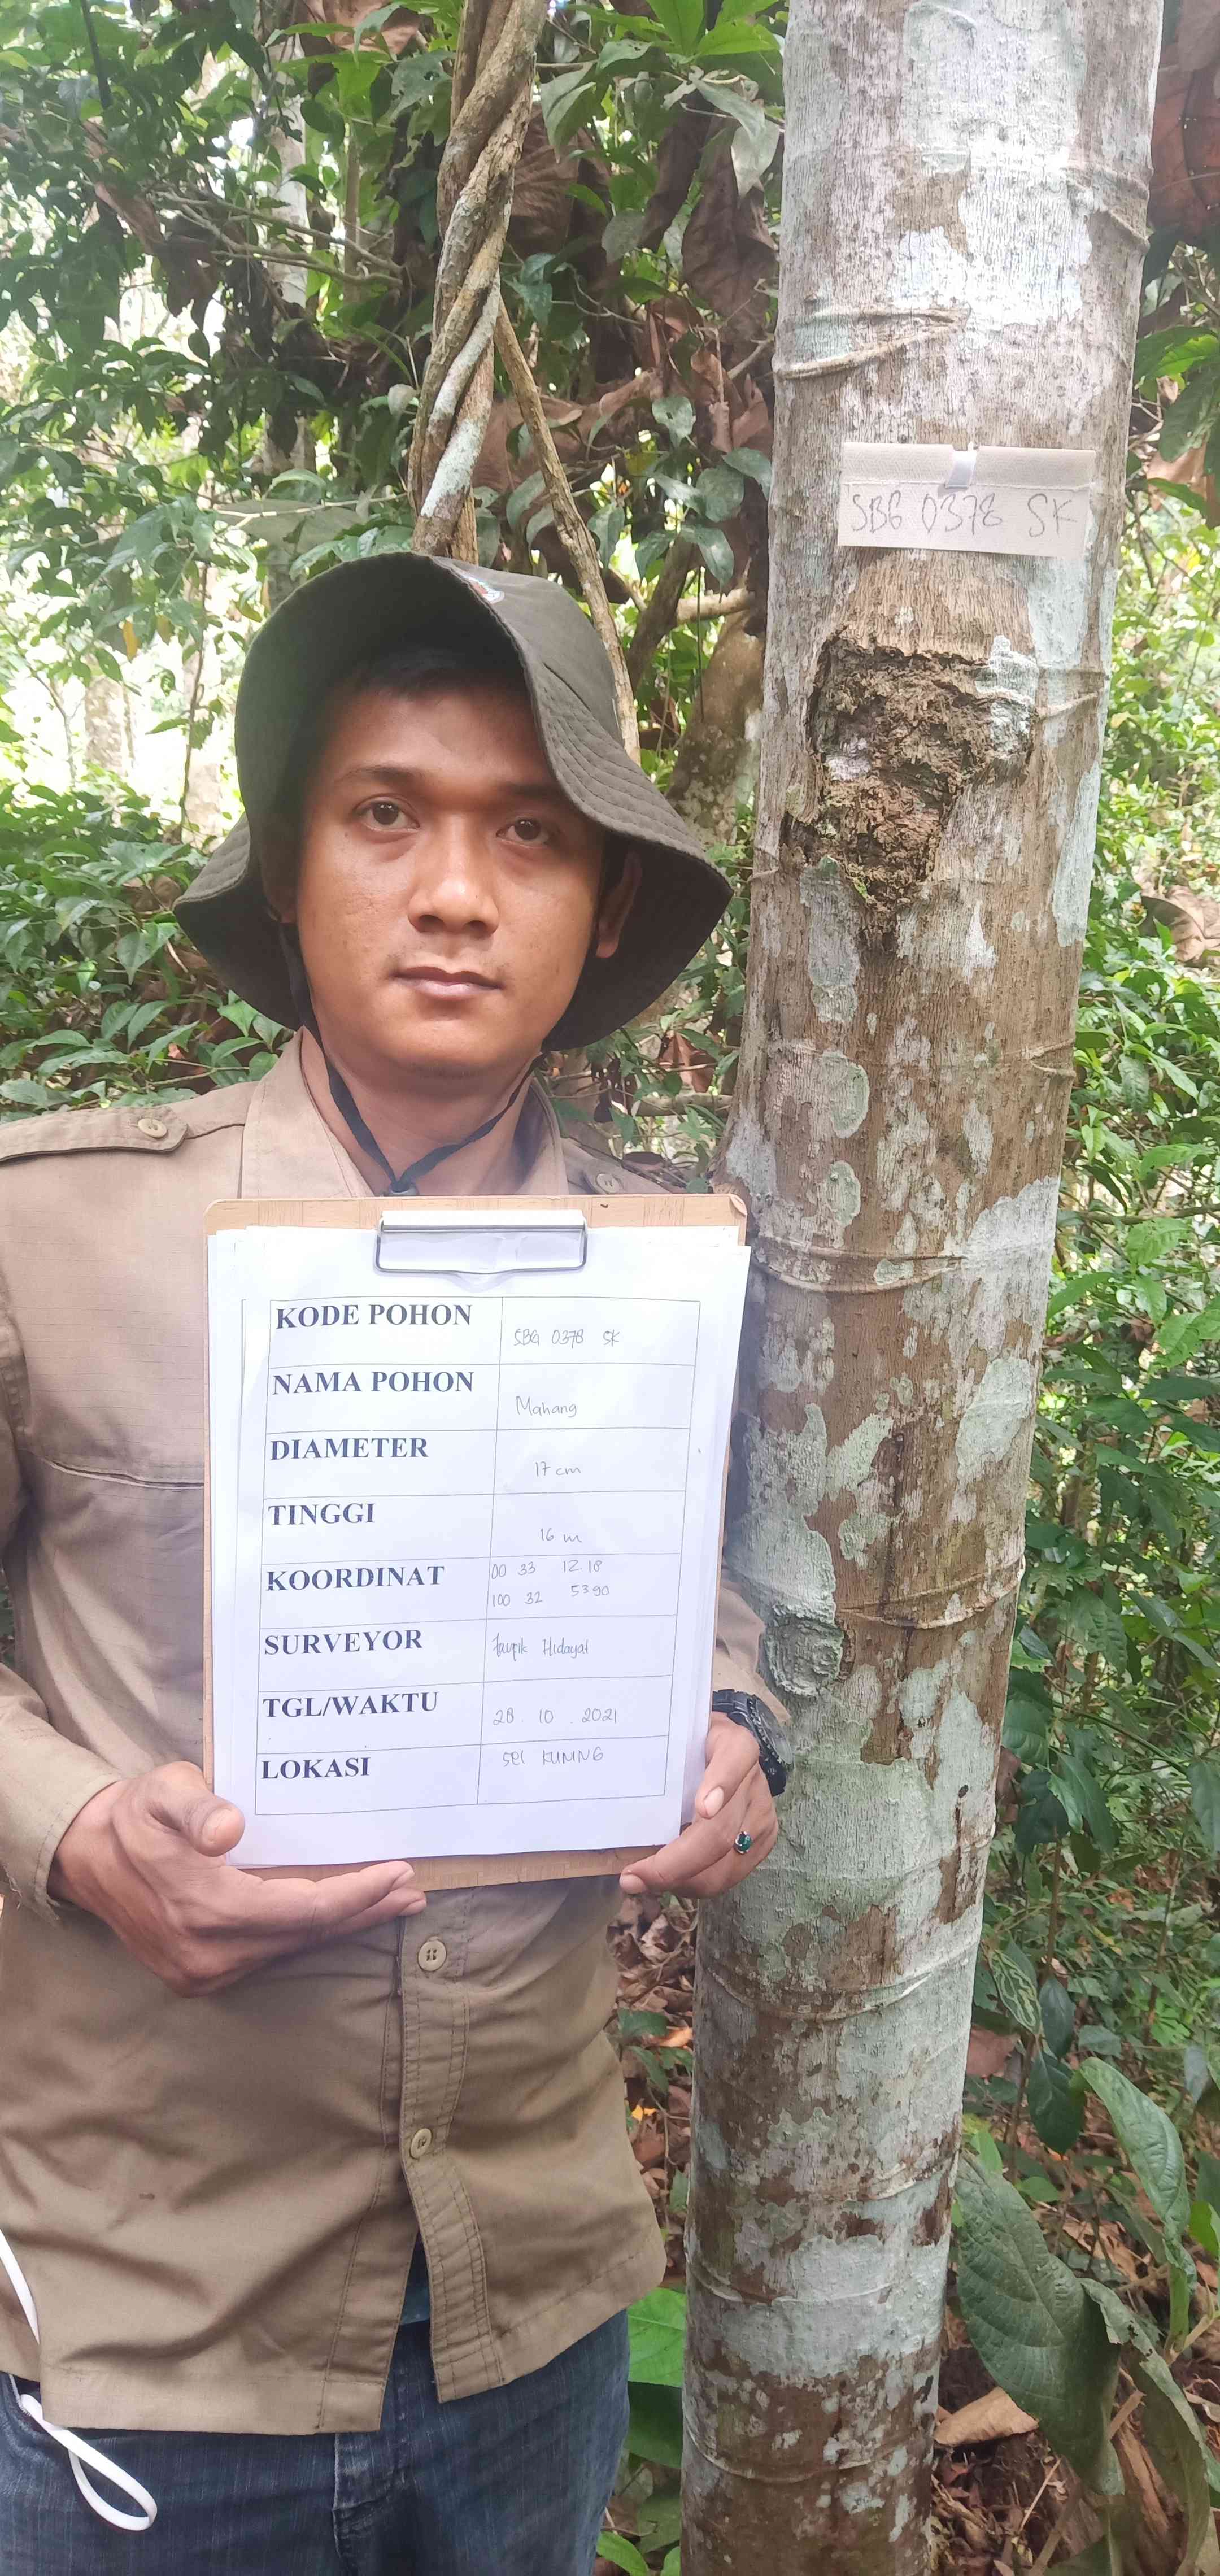 SBG 0378 SK
KODE POHON SBG 0378 SK
NAMA POHON Mahang
DIAMETER 17 cm
TINGGI 16 m
KOORDINAT 00 33 12.18
100 32 5390
SURVEYOR Hidayat
TGL/WAKTU 28 10 . 2021
LOKASI KUNING